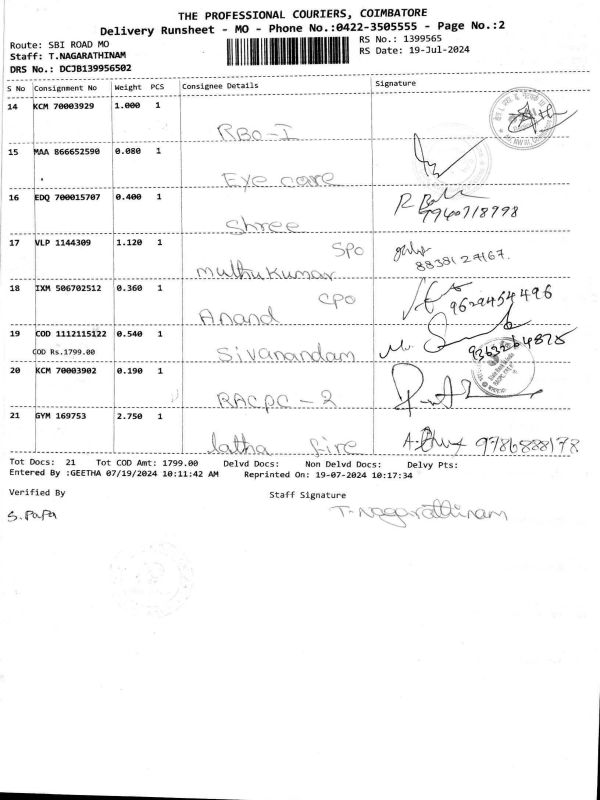 THE PROFESSIONAL COURIERS, COIMBATORE
Delivery Runsheet - MO - Phone No.:0422-3505555 - Page No.:2
Route: SBI ROAD MO
RS No.: 1399565
Staff: T.NAGARATHINAM
RS Date: 19-Jul-2024
DRS No.: DCJB139956502
S No Consignment No Weight PCS Consignee Details Signature
14 KCM 70003929 1.000 1
RBO-I
15 MAA 866652590 0.080 1
Eye care
16 EDQ 700015707 0.400 1
Shree
7940718798
17 VLP 1144309 1.120 1
SPO
muthukumar
8838127167.
18 IXM 506702512 0.360 1
CPO
Anand
9629454496
19 COD 1112115122 0.540 1
COD Rs.1799.00
Sivanandam
20 KCM 70003902 0.190 1
RACPC - 2
21 GYM 169753 2.750 1
latha fire
9786888178
Tot Docs: 21 Tot COD Amt: 1799.00 Delvd Docs: Non Delvd Docs: Delvy Pts:
Entered By :GEETHA 07/19/2024 10:11:42 AM Reprinted On: 19-07-2024 10:17:34
Verified By Staff Signature
S. Papa T. Nagarathinam